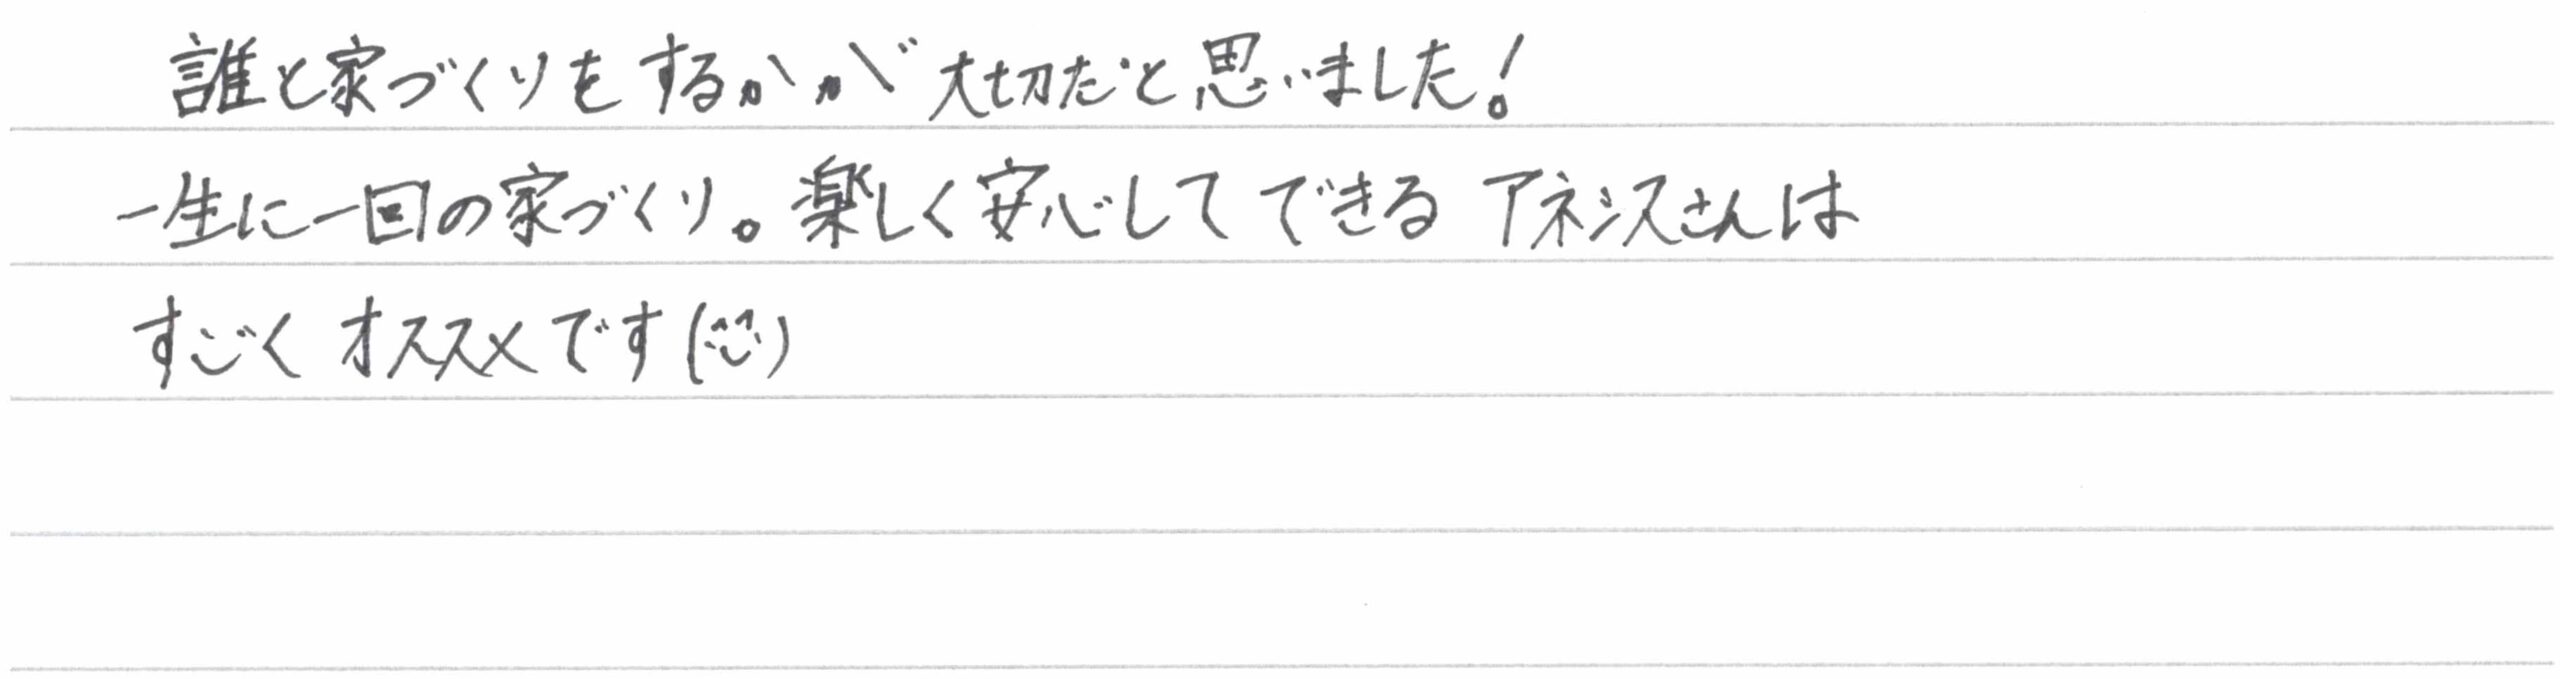 誰と家づくりをするかが大切だと思いました!
一生に一回の家づくり。楽しく安心してできるアネシスさんは
すごくオススメです(^^)